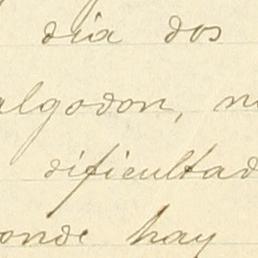 dia dos
algodon, n
dificultad
onde hay